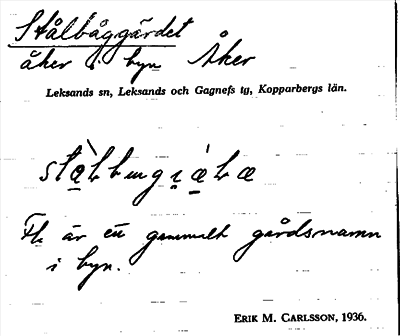 Stålbåggärdet
åker i byn Åker
Leksands sn, Leksands och Gagnefs tg, Kopparbergs län.
är ett gammalt gårdsnamn
i byn.
ERIK M. CARLSSON, 1936.